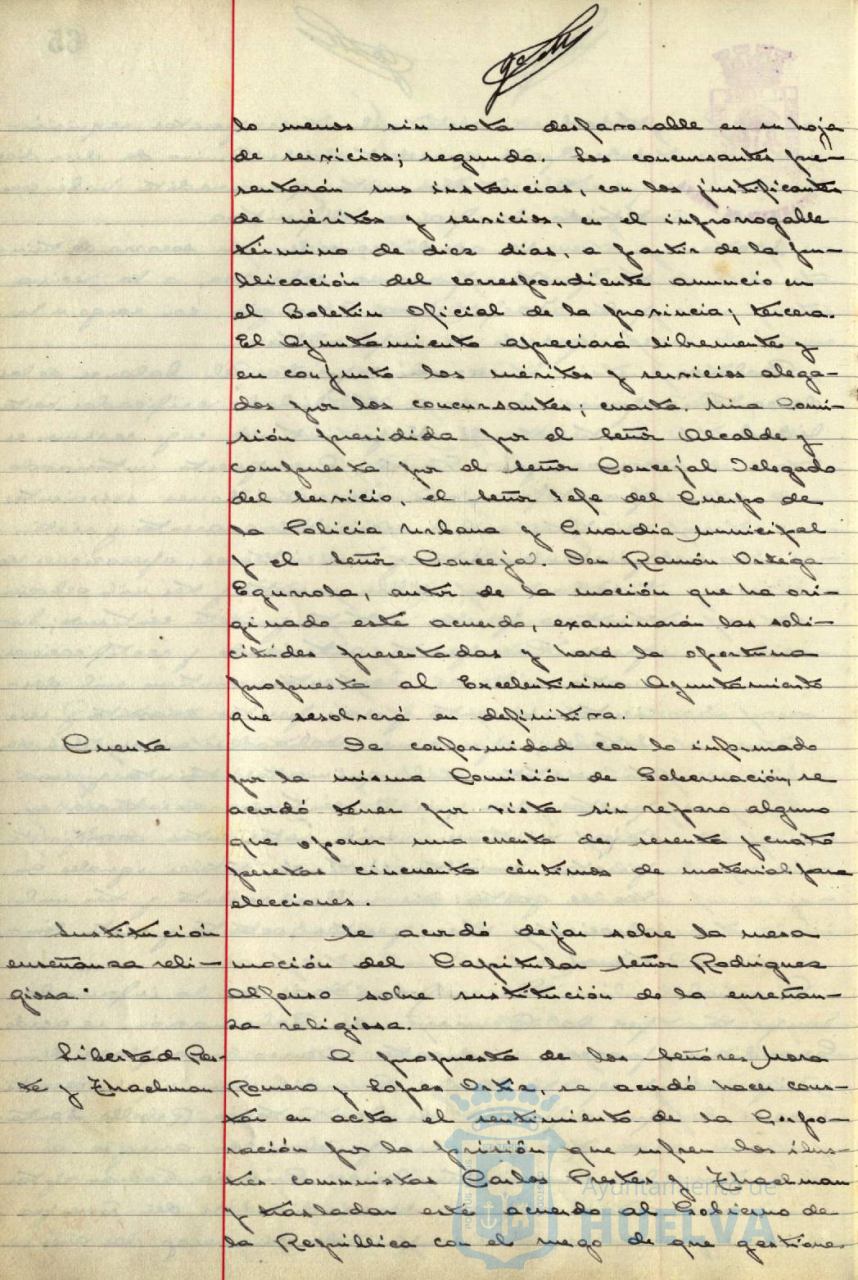 lo menos sin nota desfavorable en su hoja
de servicios; segunda. Los concursantes pre-
sentarán sus instancias, con los justificantes
de méritos y servicios, en el improrrogable
término de diez días, a partir de la pu-
blicación del correspondiente anuncio en
el Boletín Oficial de la provincia; tercera.
El Ayuntamiento apreciará libremente y
en conjunto los méritos y servicios alega-
dos por los concursantes; cuarta. Una Comi-
sión presidida por el señor Alcalde y
compuesta por el señor Concejal Delegado
del servicio, el señor Jefe del Cuerpo de
la Policía Urbana y Guardia municipal
y el señor Concejal Don Ramón Ortega
Egurrola, autor de la moción que ha ori-
ginado este acuerdo, examinarán las soli-
citudes presentadas y hará la oportuna
propuesta al Excelentísimo Ayuntamiento
que resolverá en definitiva.
Cuenta
De conformidad con lo informado
por la misma Comisión de Gobernación, se
acordó tener por vista sin reparo alguno
que oponer una cuenta de sesenta y cuatro
pesetas cincuenta céntimos de material para
elecciones.
Sustitución
enseñanza reli-
giosa.
Se acordó dejar sobre la mesa
moción del Capitular señor Rodríguez
Alfonso sobre sustitución de la enseñan-
za religiosa.
Libertad Pres-
te y Thaelman
A propuesta de los señores Mora
Romero y López Ortiz, se acordó hacer cons-
tar en acta el sentimiento de la Corpo-
ración por la prisión que sufren los ilus-
tres comunistas Carlos Prestes y Thaelman
y trasladar este acuerdo al Gobierno de
la República con el ruego de que gestione
Ayuntamiento de
HUELVA